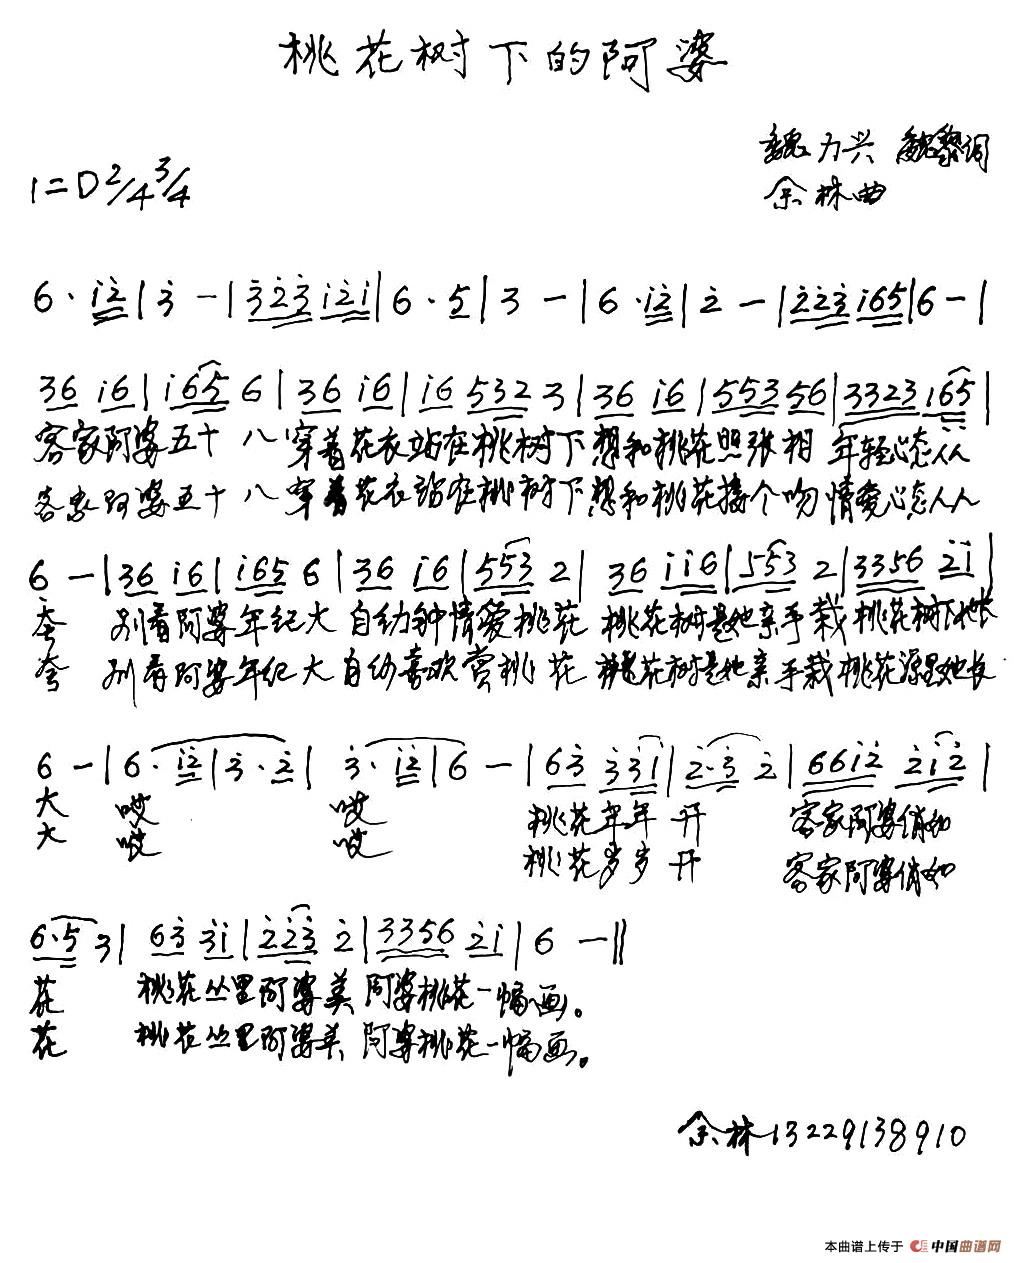 桃花树下的阿婆
魏力兴 魏黎词
1=D 2/4 3/4
余林曲
6· i̇2̇ | 3̇ - | 3̇2̇3̇ i̇2̇i̇ | 6· 5 | 3 - | 6· i̇2̇ | 2̇ - | 2̇2̇3̇ i̇65 | 6 - |
36 i̇6 | i̇65 6 | 36 i̇6 | i̇6 532 3 | 36 i̇6 | 553 56 | 3323 165 |
客家阿婆五十八 穿着花衣站在桃树下 想和桃花照张相 年轻心态人人
客家阿婆五十八 穿着花衣站在桃树下 想和桃花接个吻 情爱心态人人
6 - | 36 i̇6 | i̇65 6 | 36 i̇6 | 553 2 | 36 i̇i̇6 | 553 2 | 3356 2̇i̇ |
夸 别看阿婆年纪大 自幼钟情爱桃花 桃花树是她亲手栽 桃花树下她长
夸 别看阿婆年纪大 自幼喜欢赏桃花 桃花树是她亲手栽 桃花源里她长
6 - | 6· i̇2̇ | 3̇· 2̇ | 3̇· i̇2̇ | 6 - | 63̇ 3̇3̇i̇ | 2̇·3̇ 2̇ | 66i̇2̇ 2̇i̇2̇ |
大 哎 哎 桃花年年开 客家阿婆俏如
大 哎 哎 桃花岁岁开 客家阿婆俏如
6·5 3 | 63̇ 3̇i̇ | 2̇2̇3̇ 2̇ | 3356 2̇i̇ | 6 - ||
花 桃花丛里阿婆美 阿婆桃花一幅画。
花 桃花丛里阿婆美 阿婆桃花一幅画。
余林13229138910
本曲谱上传于 中国曲谱网